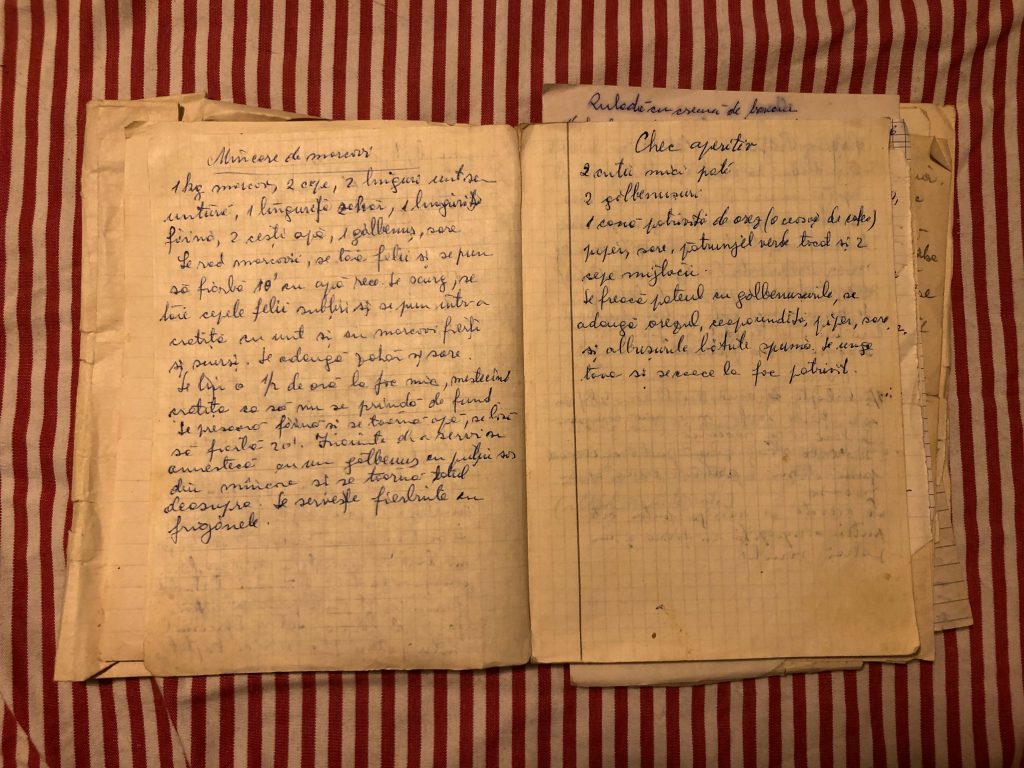 Mîncare de morcovi
1 kg morcov, 2 cepe, 2 linguri unt sau
untură, 1 linguriță zahăr, 1 linguriță
făină, 2 cești apă, 1 gălbenuș, sare
Se rad morcovii, se taie felii și se pun
să fiarbă 10' cu apă rece. Se scurg, se
taie cepele felii subțiri și se pun într-o
cratiță cu unt și cu morcovi fierți
și scurși. Se adaugă zahăr și sare.
Se ține o 1/2 de oră la foc mic, mestecînd
cratița ca să nu se prindă de fund
Se presoară făina și se toarnă apă, se lasă
să fiarbă 20'. Înainte de a servi se
amestecă cu un gălbenuș cu puțin sos
din mîncare și se toarnă totul
deasupra. Se servește fierbinte cu
frigănele.
Ruladă cu cremă de banane
Chec aperitiv
2 cutii mici paté
2 gălbenușuri
1 cană potrivită de orez (o ceașcă de cafea)
piper, sare, pătrunjel verde tocat și 2
cepe mijlocii.
Se freacă pateul cu gălbenușurile, se
adaugă orezul, piper, sare
și albușurile bătute spumă. Se unge
tava și se coace la foc potrivit.